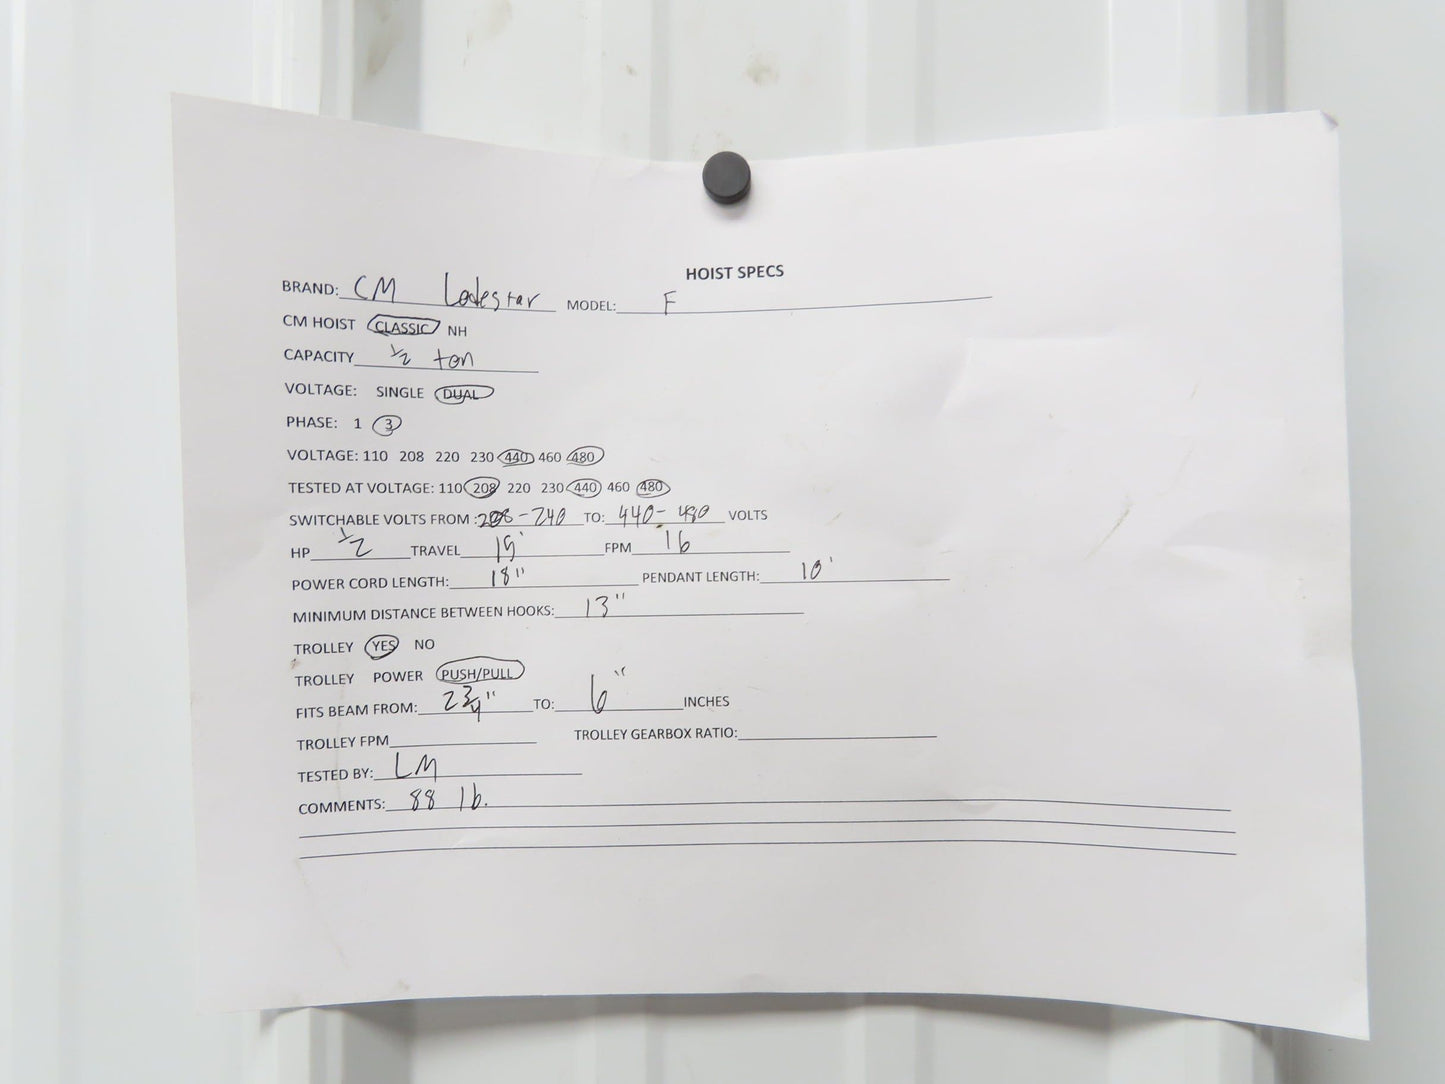 HOIST SPECS
BRAND: CM Lodestar MODEL: F
CM HOIST CLASSIC NH
CAPACITY 1/2 ton
VOLTAGE: SINGLE DUAL
PHASE: 1 3
VOLTAGE: 110 208 220 230 440 460 480
TESTED AT VOLTAGE: 110 208 220 230 440 460 480
SWITCHABLE VOLTS FROM: 208-240 TO: 440-480 VOLTS
HP 1/2 TRAVEL FPM 16
POWER CORD LENGTH: 18" PENDANT LENGTH: 10'
MINIMUM DISTANCE BETWEEN HOOKS: 13"
TROLLEY YES NO
TROLLEY POWER PUSH/PULL
FITS BEAM FROM: 2 3/4" TO: 6" INCHES
TROLLEY FPM TROLLEY GEARBOX RATIO:
TESTED BY: LM
COMMENTS: 88 lb.